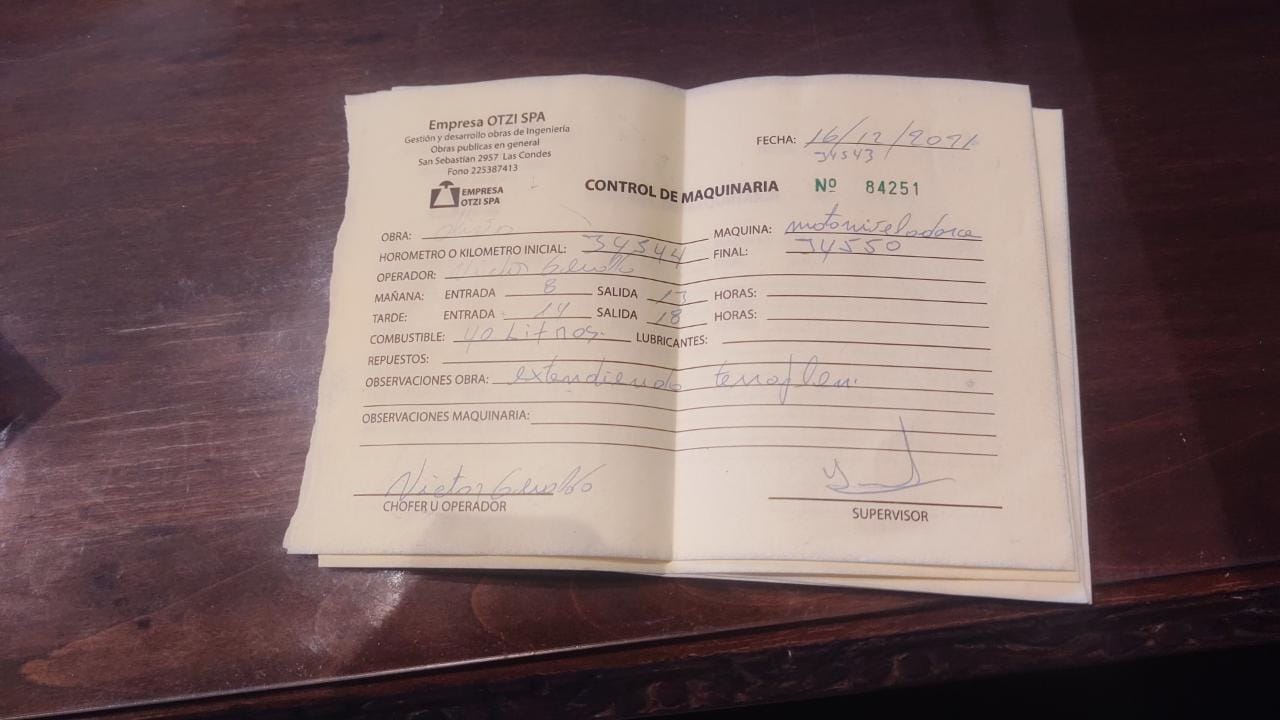 Empresa OTZI SPA
Gestión y desarrollo obras de Ingeniería
Obras publicas en general
San Sebastian 2957 Las Condes
Fono 225387413
EMPRESA
OTZI SPA
FECHA: 16/12/2021
34543
CONTROL DE MAQUINARIA Nº 84251
OBRA: MAQUINA: motoniveladora
HOROMETRO O KILOMETRO INICIAL: 34544 FINAL: 34550
OPERADOR: Victor
MAÑANA: ENTRADA 8 SALIDA 13 HORAS:
TARDE: ENTRADA 14 SALIDA 18 HORAS:
COMBUSTIBLE: 40 Litros. LUBRICANTES:
REPUESTOS:
OBSERVACIONES OBRA: extendiendo terraplen.
OBSERVACIONES MAQUINARIA:
Victor
CHOFER U OPERADOR
SUPERVISOR